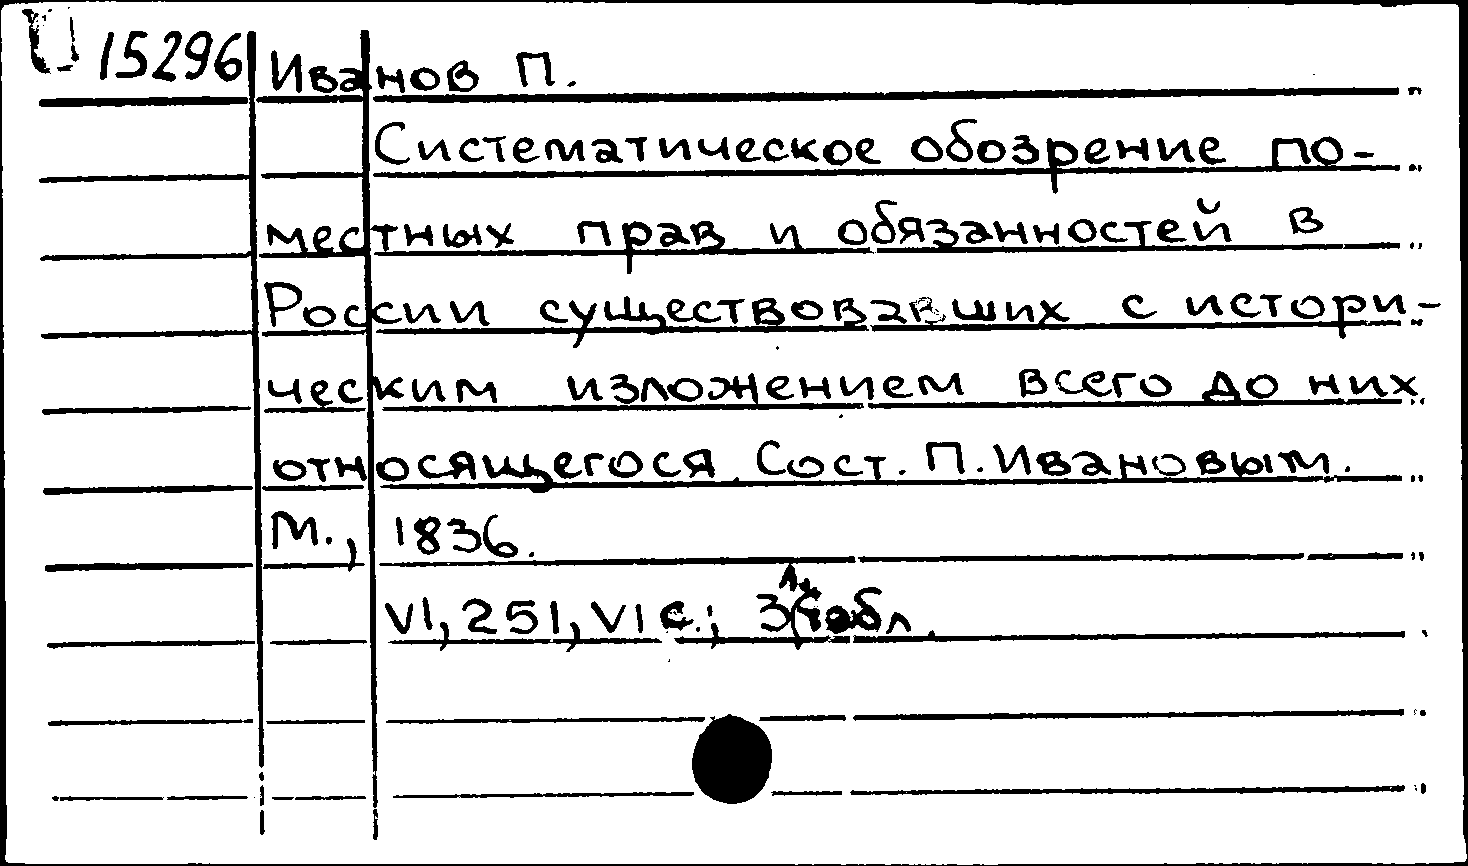 15296 Иванов П.
Систематическое обозрение по-
местных прав и обязанностей в
России существовавших с истори-
ческим изложением всего до них
относящегося. Сост. П. Ивановым.
М., 1836.
VI, 251, VI с.; 3 л. табл.